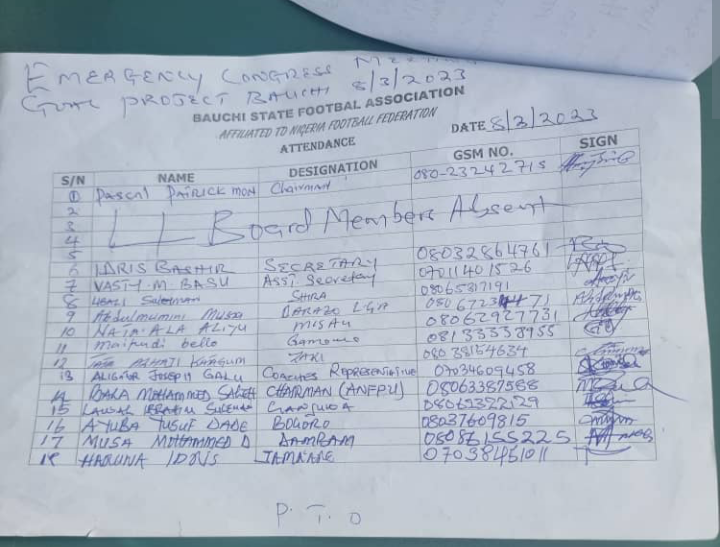 EMERGENCY CONGRESS MEETING
GOAL PROJECT BAUCHI 8/3/2023
BAUCHI STATE FOOTBAL ASSOCIATION
AFFILIATED TO NIGERIA FOOTBALL FEDERATION
ATTENDANCE
DATE 8/3/2023
S/N NAME DESIGNATION GSM NO. SIGN
1 Pascal PATRICK MON Chairman 080-23242715
2
3 Board Members Absent
4
5
6 IDRIS BASHIR SECRETARY 08032864761
7 VASTY. M. BASU ASST. Secretary 07011401526
8 SHIRA 08065817191
9 Abdulmumini Musa DARAZO LGA
10 NATA'ALA ALIYU MISAU 08062927731
11 maipudi bello Gamawa 08133338955
12 ZAKI 08038134634
13 JOSEPH GALU COACHES Representative 07034609458
14 BALA MOHAMMED SALEH CHAIRMAN (ANFPU) 08063387588
15 LAWAL IBRAHIM GIANJUWA
16 AYUBA YUSUF DADE BOGORO 08037609815
17 MUSA MOHAMMED D DAMBAM 08086155225
18 HARUNA IDRIS JAMA'ARE 07038451011
P. T. O